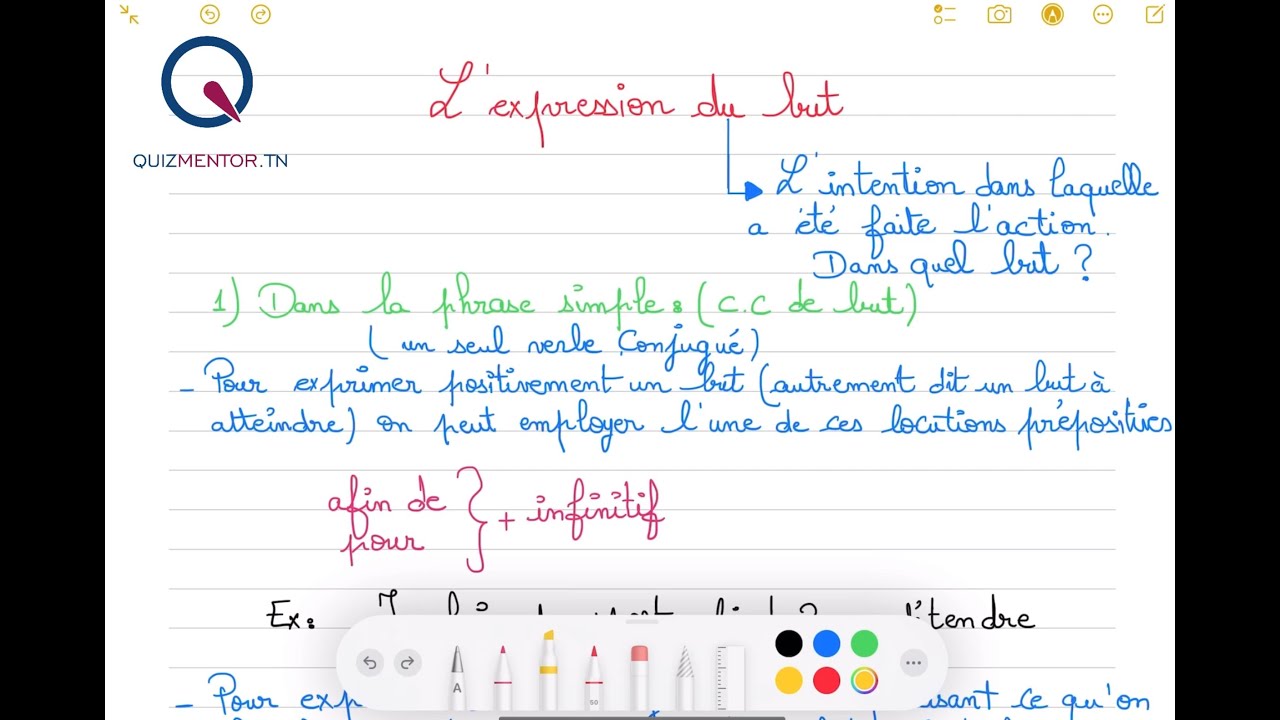 QUIZMENTOR.TN
L'expression du but
L'intention dans laquelle
a été faite l'action.
Dans quel but ?
1) Dans la phrase simple : (C.C de but)
(un seul verbe conjugué)
- Pour exprimer positivement un but (autrement dit un but à
atteindre) on peut employer l'une de ces locutions prépositives
afin de
pour
} + infinitif
Ex:
- Pour
ce qu'on
A
50